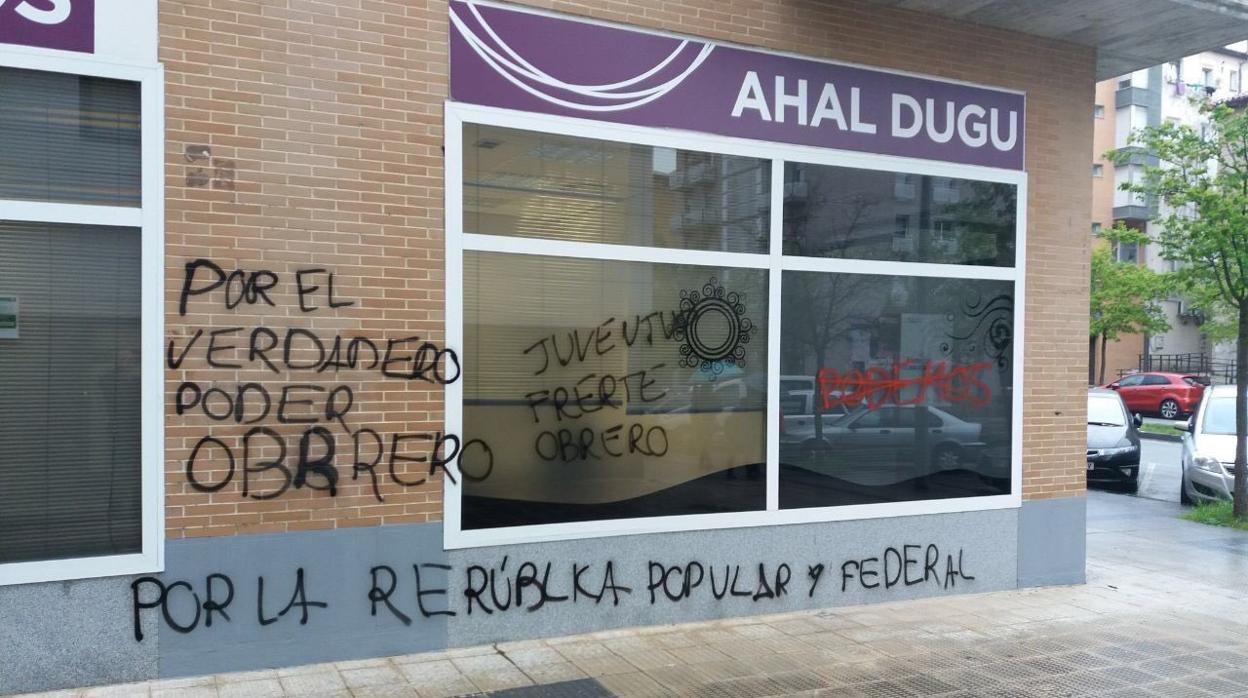 OS
AHAL DUGU
POR EL
VERDADERO
PODER
OBRRERO
JUVENTUD
FRERTE
OBRERO
PODEMOS
POR LA REPÚBLKA POPULAR Y FEDERAL